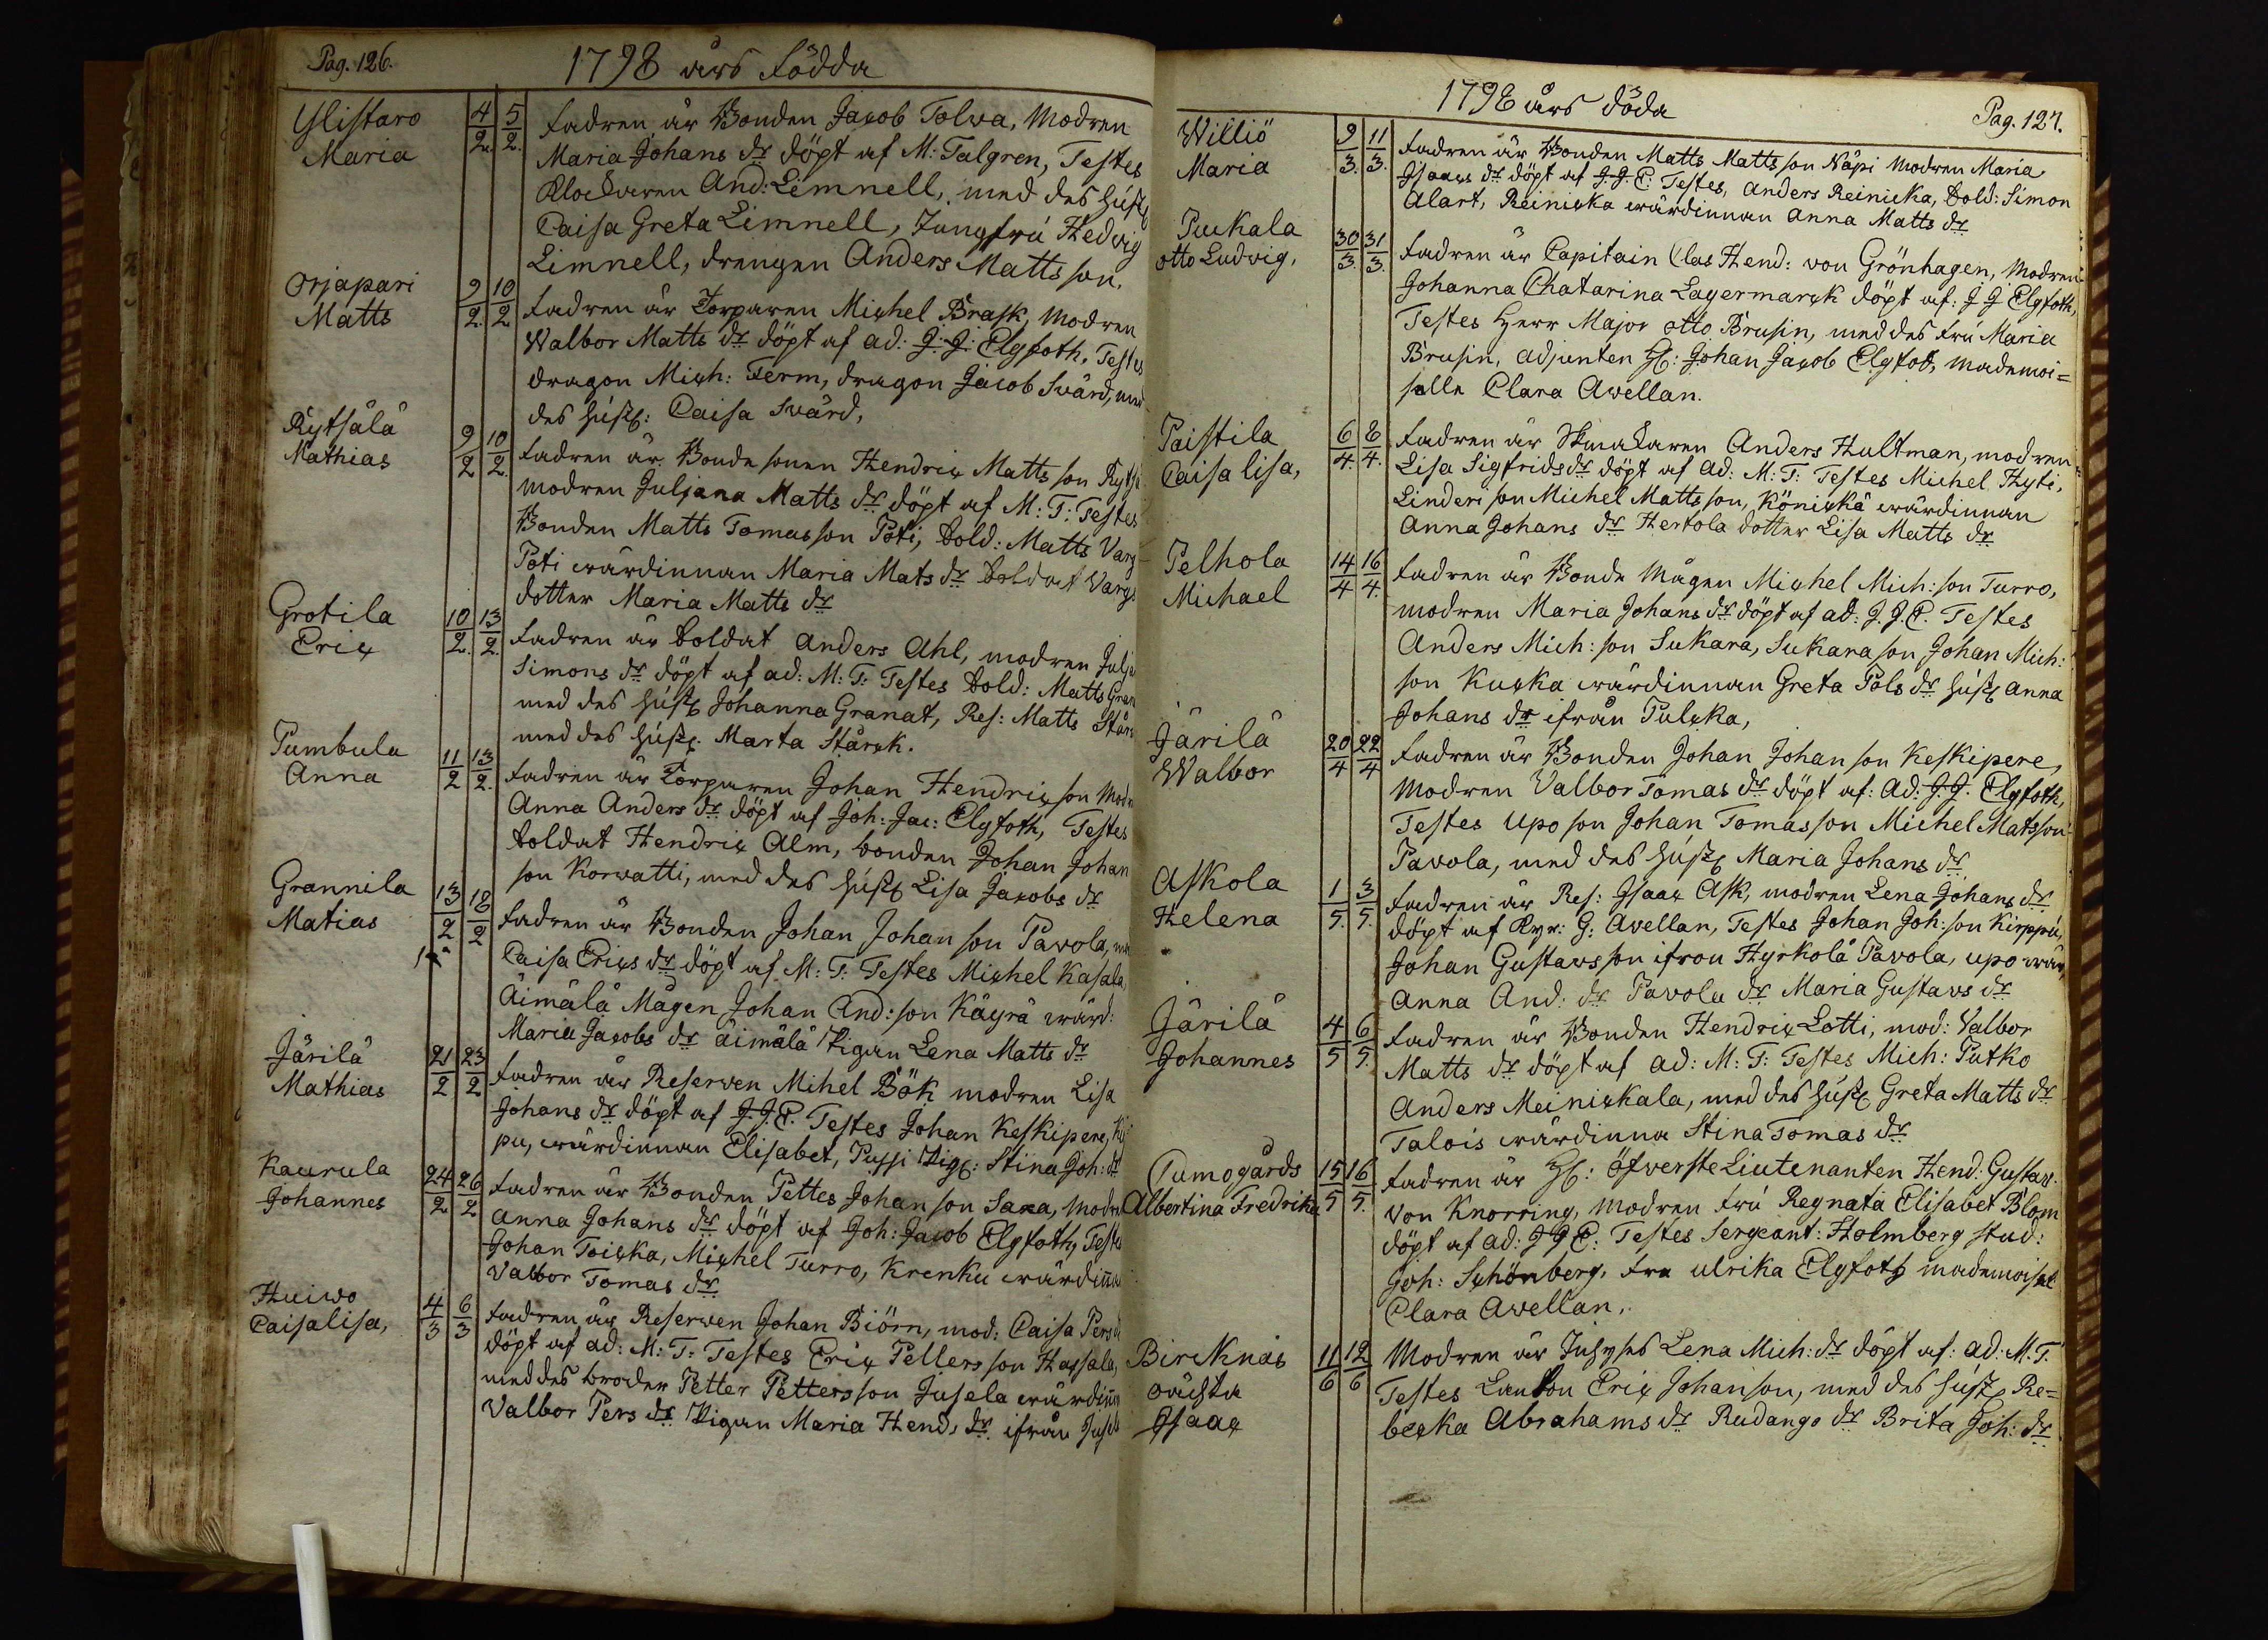 Pag. 126.
1798 års födda
Ylistaro
Maria
4/2. 5/2.
fadren är Bonden Jacob Tolva, modren
Maria Johans dr döpt af M: Talgren, Testes
Klockaren And: Limnell, med des hust
Caisa Greta Limnell, Jungfru Hedvig
Limnell, drengen Anders Matts son.
Orjapari
Matts
9/2. 10/2
fadren är Torparen Michel Brask, modren
Walbor Matts dr döpt af ad: J: J: Elgfoth. Testes
dragon Mich: Ferm, dragon Jacob Svärd, med
des hust: Caisa Svärd,
Kytsälä
Mathias
9/2 10/2.
fadren är Bonde sonen Hendric Matts son Kytsä
modren Juljana Matts dr döpt af M: T: Testes
Bonden Matts Tomas son Pöti, Sold: Matts Varg
Pöti wärdinnan Maria Mats dr Soldat Vargs
dotter Maria Matts dr
Grotila
Eric
10/2. 13/2.
fadren är Soldat Anders Ahl, modren Julja
Simons dr döpt af ad: M: T: Testes Sold: Matts Gran
med des hust Johanna Granat, Res: Matts Stärc
med des hust. Marta Stärck.
Pumbula
Anna
11/2 13/2.
fadren är Torparen Johan Hendric son modr
Anna Anders dr döpt af Joh: Jac: Elgfoth, Testes
Soldat Hendric Alm, bonden Johan Johan
son Korwatti, med des hust Lisa Jacobs dr
Grannila
Matias
13/2 18/2
fadren är Bonden Johan Johan son Pavola, mo
Caisa Erics dr döpt af M: T: Testes Michel Kasala
Äimälä Mågen Johan And: son Käyrä wärd:
Maria Jacobs dr äimälä Pigan Lena Matts dr
Järilä
Mathias
21/2 23/2
fadren är Reserven Mihel Bök modren Lisa
Johans dr döpt af J. J. E. Testes Johan Keskipere,
pu, wärdinnan Elisabet, Pussi Pig: Stina Joh: dr
Kaurula
Johannes
24/2 26/2
fadren är Bonden Pettes Johan son Saxa, modre
Anna Johans dr döpt af Joh: Jacob Elgfoth, Testes
Johan Toicka, Michel Turro, Krenku wärdinna
Valbor Tomas dr
Huiwo
Caisalisa,
4/3 6/3
fadren är Reserven Johan Biörn, mod: Caisa Pers d
döpt af ad: M: T: Testes Eric Pellers son Hassala,
med des broder Petter Petters son Jusela wärdinn
Valbor Pers dr Pigan Maria Hend, dr ifrån Jusel
1798 års döda
Pag. 127.
Williö
Maria
9/3. 11/3.
fadren är Bonden Matts Matts son Näpi modren Maria
Isaacs dr döpt af J. J. E: Testes, Anders Reinicka, Sold: Simon
Alart, Reinicka wärdinnan Anna Matts dr
Puckala
otto Ludvig,
30/3. 31/3.
fadren är Capitain Clas Hend: von Grönhagen, Modren
Johanna Chatarina Lagermarck döpt af: J J Elgfoth,
Testes Herr Major otto Brusin, med des fru Maria
Brusin, adjunten H: Johan Jacob Elgfot, mademoi=
selle Clara Awellan.
Paistila
Caisa lisa,
6/4. 8/4.
fadren är Skmakaren Anders Hultman, modren
Lisa Sigfrids dr döpt af ad: M: T: Testes Michel Hyti,
Linderi son Michel Matts son, Könickä wärdinnan
Anna Johans dr Hertola dotter Lisa Matts dr
Pelhola
Michael
14/4 16/4.
fadren är Bonde Mågen Michel Mich: son Turro,
modren Maria Johans dr döpt af ad: J. J. E. Testes
Anders Mich: son Sukara, Sukara son Johan Mich:
son Kucka wärdinnan Greta Påls dr hust Anna
Johans dr ifrån Pulcka,
Järilä
Walbor
20/4 22/4
fadren är Bonden Johan Johan son Keskipere,
Modren Valbor Tomas dr döpt af: ad: J. J. Elgfoth,
Testes Upo son Johan Tomas son Michel Mats son
Pavola, med des hust Maria Johans dr
Askola
Helena
1/5. 3/5.
fadren är Res: Isaac Ask, modren Lena Johans dr
döpt af Kyr: G: Avellan, Testes Johan Joh: son Kirppu,
Johan Gustavs son ifron Hyrkölä Pavola, upo wär,
Anna And: dr Pavola dr Maria Gustavs dr
Järilä
Johannes
4/5 6/5.
fadren är Bonden Hendric Lotti, mod: Valbor
Matts dr döpt af ad: M: T: Testes Mich: Putko
Anders Meinickala, med des hust Greta Matts dr
Talois wärdinna Stina Tomas dr
Tumogårds
Albertina Fredrika
15/5 16/5.
fadren är H: Öfwerste Liutenanten Hend: Gustav.
von Knorring, modren fru Regnata Elisabet Blom
döpt af ad: J J E: Testes Sergeant: Holmberg stud:
Joh: Schönberg, fru ulrika Elgfoth mademoisel
Clara Awellan,
Bircknäs
oächta
Isaac
11/6 12/6
Modren är Inhyses Lena Mich: dr döpt af: ad: M. T.
Testes Eric Johan son, med des hust Re=
becka Abrahams dr Rudango dr Brita Joh: dr